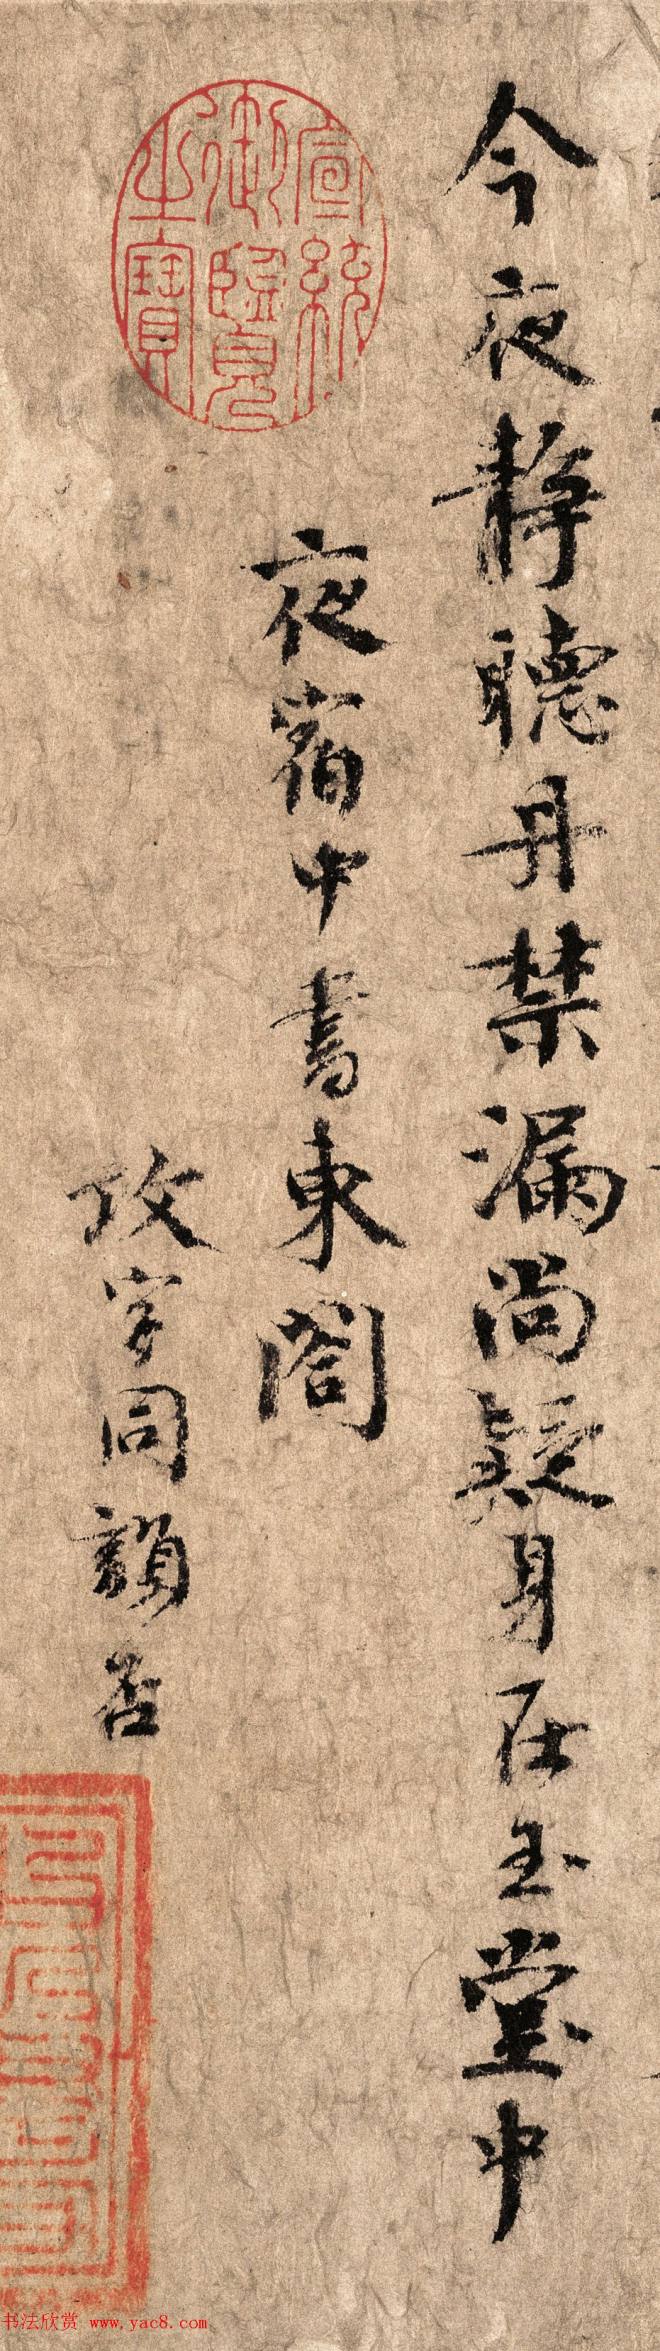 今夜静聽丹禁漏尚疑身在玉堂中
夜宿中書東閤
改字同韻否
宣統御覽之寶
书法欣赏 www.yac8.com